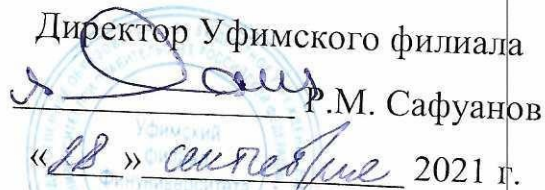 Директор Уфимского филиала
Р.М. Сафуанов
«28» сентября 2021 г.